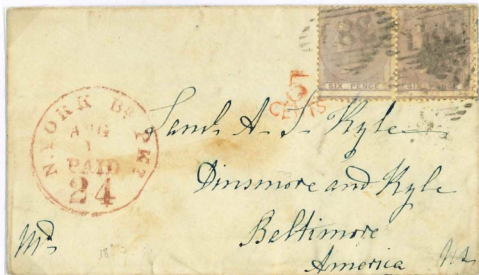 SIX PENCE SIX PENCE
38
5
CENTS
N.YORK Br PKT
AUG
1
PAID
24
A. S. Kyle
Dinsmore and Kyle
Baltimore
America
Md